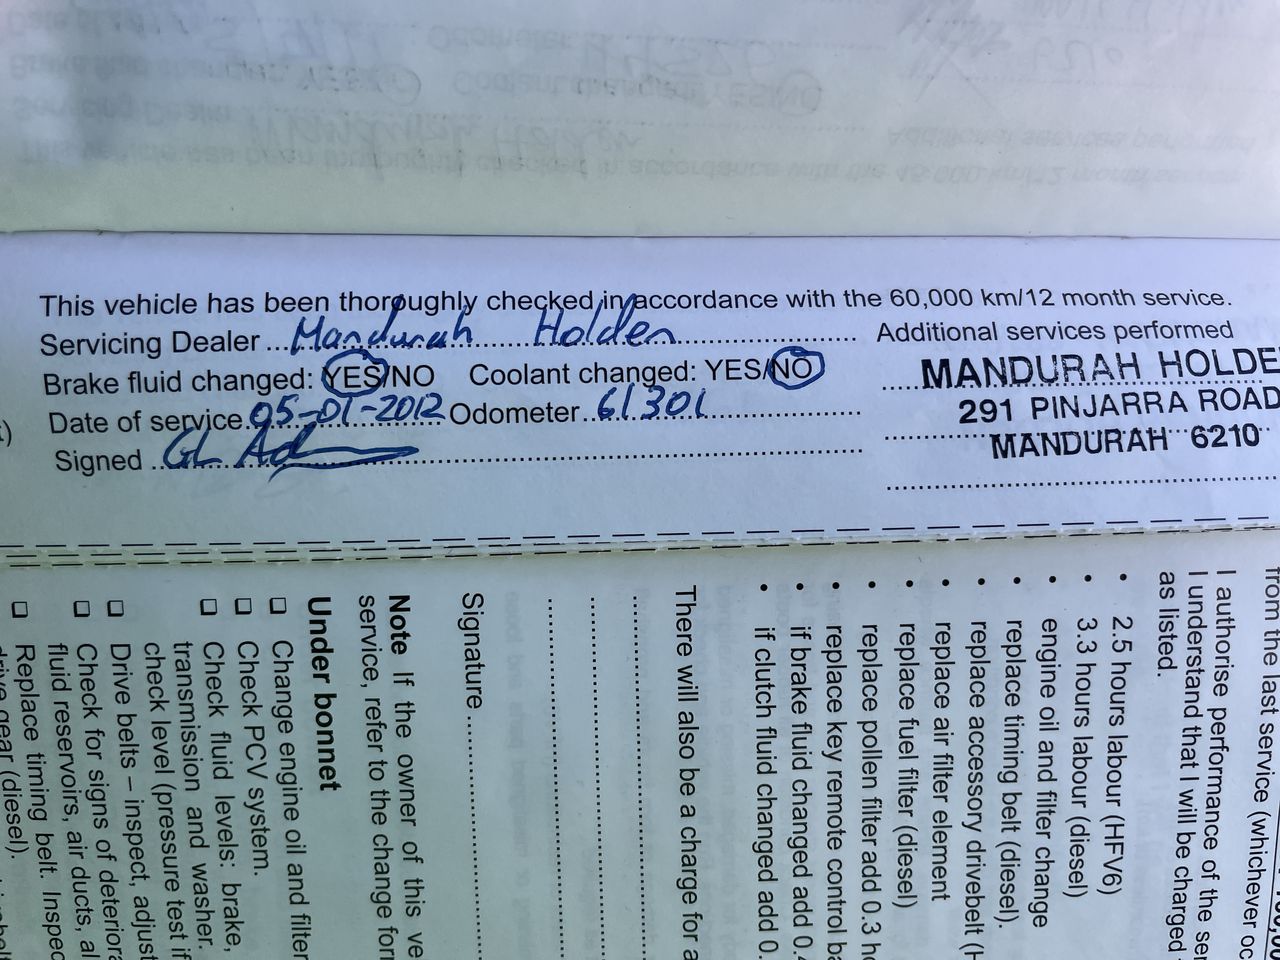 This vehicle has been thoroughly checked in accordance with the 60,000 km/12 month service.
Servicing Dealer Mandurah Holden
Brake fluid changed: YES/NO Coolant changed: YES/NO
Date of service 05-01-2012 Odometer 61301
Signed
Additional services performed
MANDURAH HOLDE
291 PINJARRA ROAD
MANDURAH 6210
from the last service (whichever oc
I authorise performance of the ser
I understand that I will be charged
as listed.
• 2.5 hours labour (HFV6)
• 3.3 hours labour (diesel)
• engine oil and filter change
• replace timing belt (diesel).
• replace accessory drivebelt (H
• replace air filter element
• replace fuel filter (diesel)
• replace pollen filter add 0.3 h
• replace key remote control ba
• if brake fluid changed add 0.
• if clutch fluid changed add 0.
There will also be a charge for a
Signature
Note If the owner of this ve
service, refer to the change for
Under bonnet
❑ Change engine oil and filter
❑ Check PCV system.
❑ Check fluid levels: brake,
transmission and washer.
check level (pressure test if
❑ Drive belts – inspect, adjust
❑ Check for signs of deteriora
fluid reservoirs, air ducts, al
❑ Replace timing belt. Inspec
drive gear (diesel).